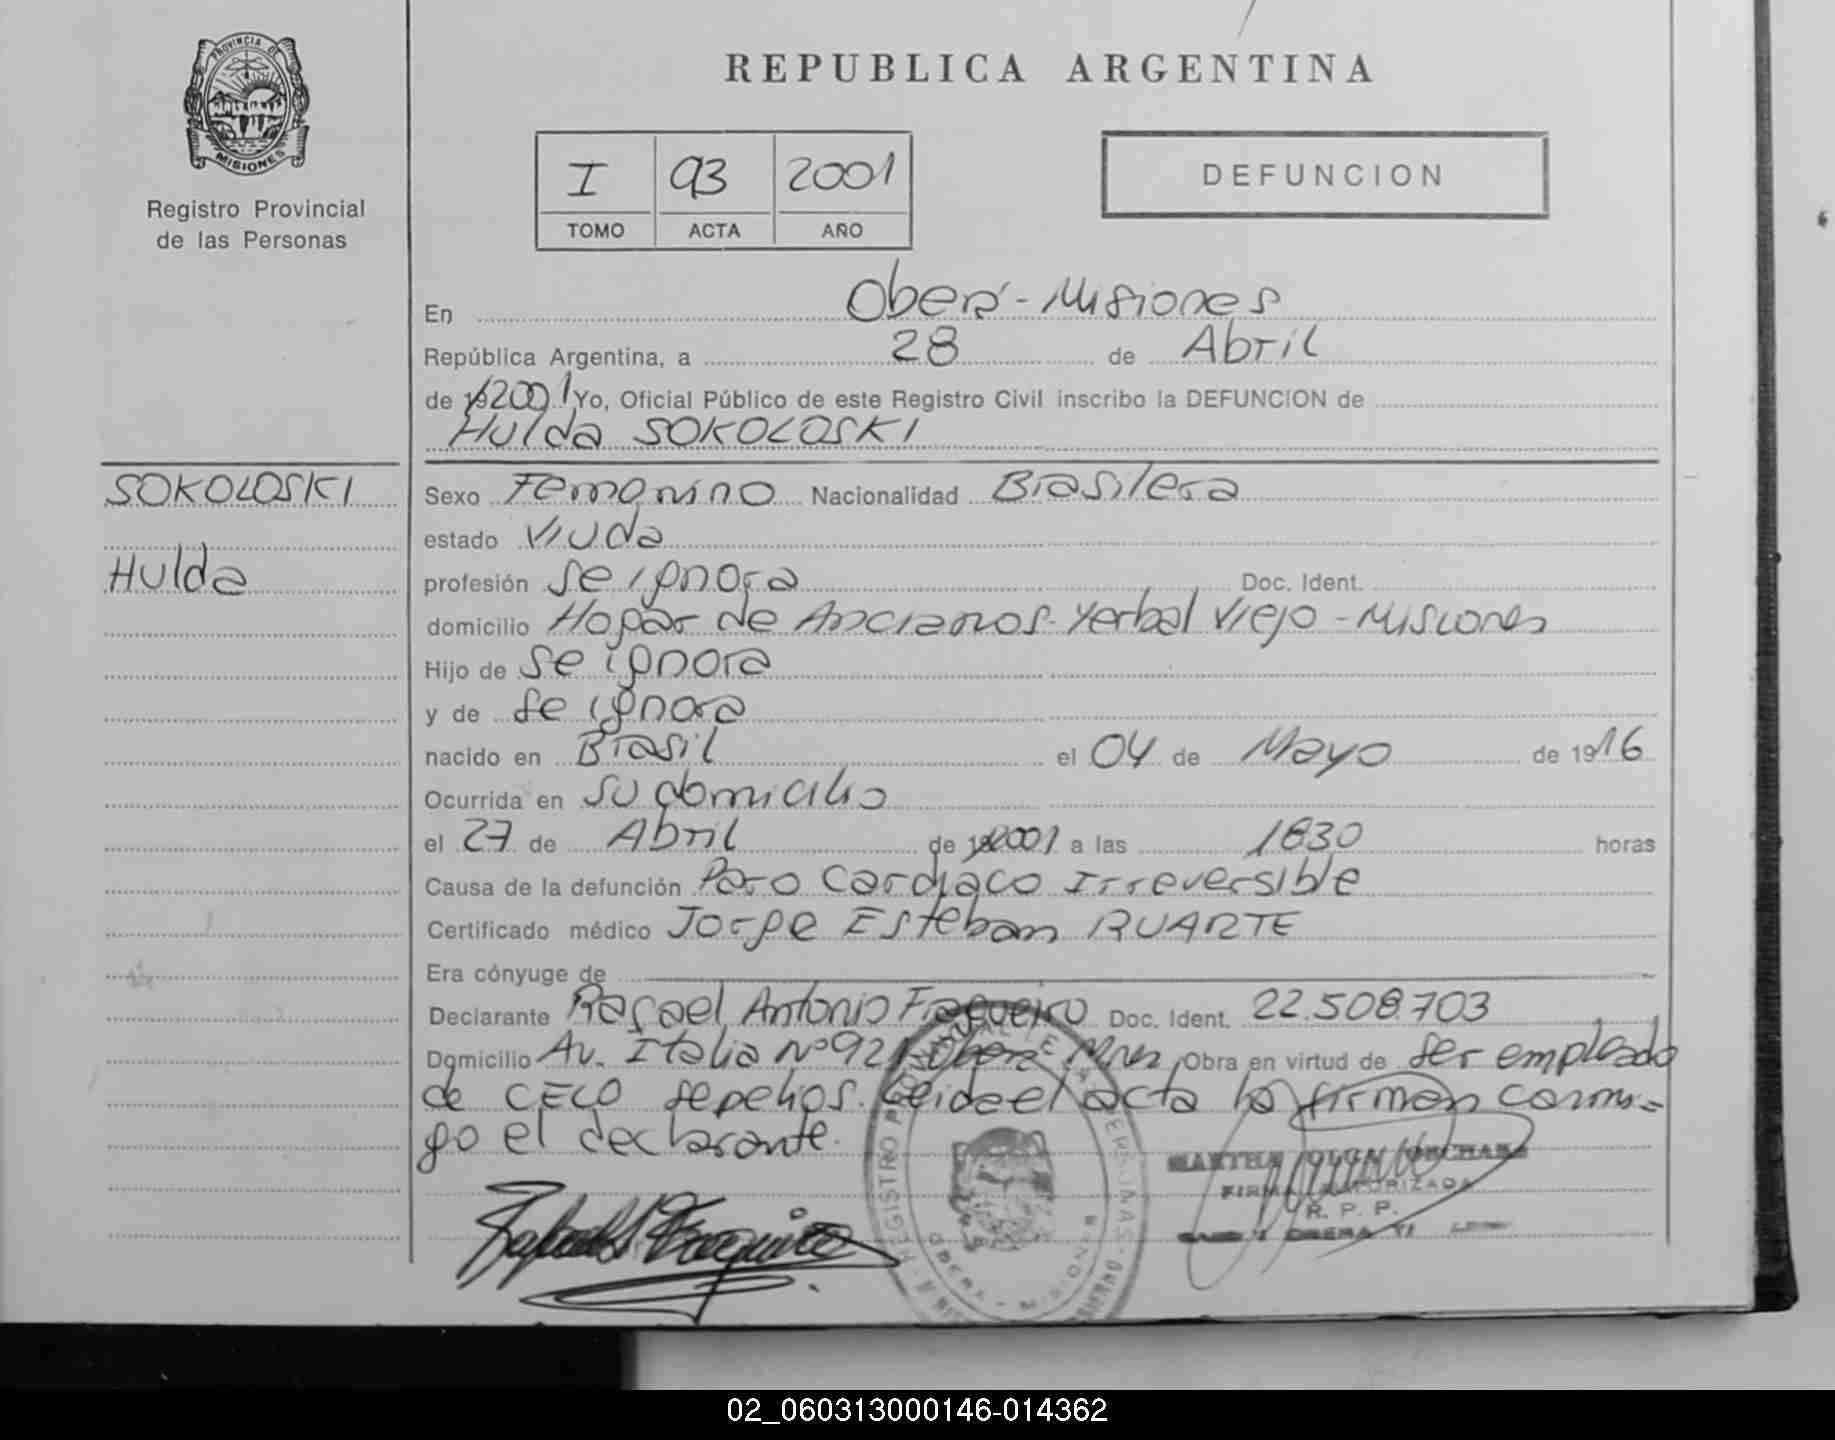 PROVINCIA DE
MISIONES
Registro Provincial
de las Personas
REPUBLICA ARGENTINA
I 93 2001
TOMO ACTA AÑO
DEFUNCION
En Oberá - Misiones
República Argentina, a 28 de Abril
de 19 2001 Yo, Oficial Público de este Registro Civil inscribo la DEFUNCION de
Hulda SOKOLOSKI
SOKOLOSKI
Hulda
Sexo Femenino Nacionalidad Brasilera
estado Viuda
profesión Se ignora Doc. Ident.
domicilio Hogar de Ancianos. Yerbal Viejo - Misiones
Hijo de Se ignora
y de Se ignora
nacido en Brasil el 04 de Mayo de 1916
Ocurrida en su domicilio
el 27 de Abril de 19 2001 a las 1830 horas
Causa de la defunción Paro Cardiaco Irreversible
Certificado médico Jorge Esteban RUARTE
Era cónyuge de
Declarante Rafael Antonio Doc. Ident. 22.508.703
Domicilio Av. Italia Nº 921 Oberá Mnes Obra en virtud de ser empleado
de CELO sepelios. Leida el acta la firman conmi-
go el declarante.
MARTHA OLGA
FIRMA AUTORIZADA
R. P. P.
REGISTRO PROVINCIAL DE LAS PERSONAS
OBERA - MISIONES
02_060313000146-014362